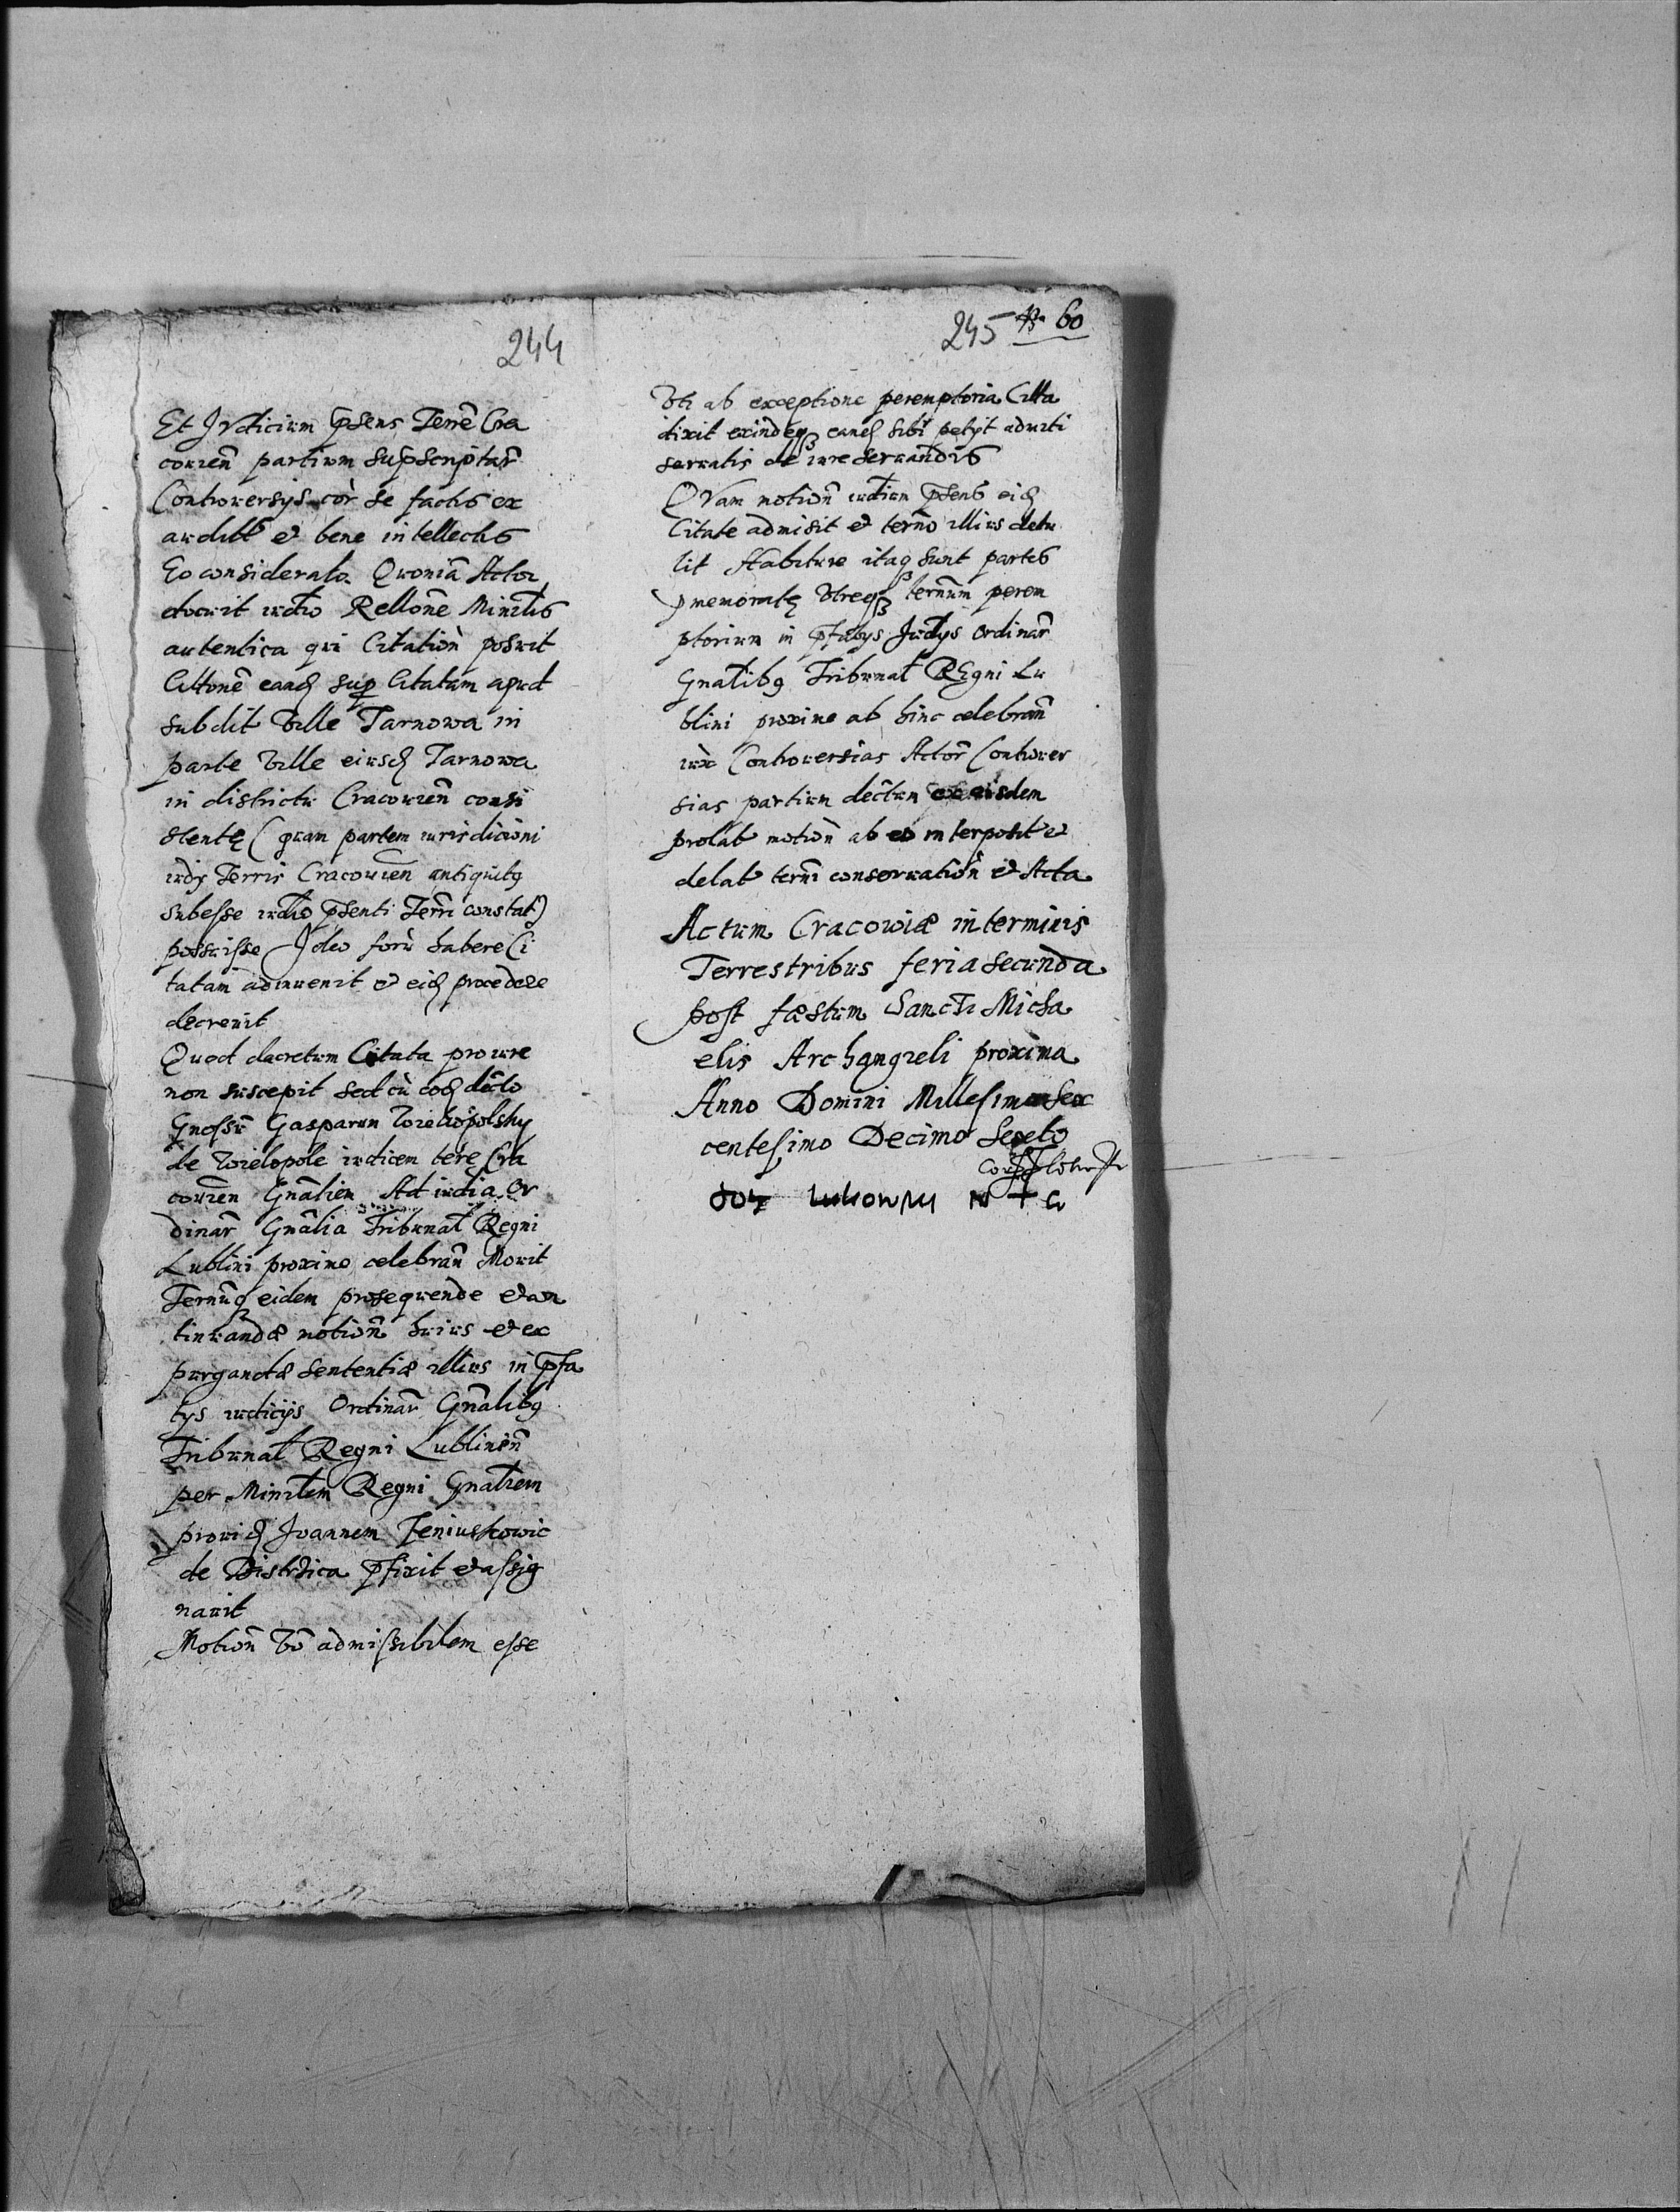 244
Et Judicium p̃sens Terrẽ Cra
couień partium sup̃scriptar̃
Controuersys cor̀ se factis ex
auditis et bene intellectis
Eo considerato Quoniã Actor
docuit iudio Rellonẽ Minr̃lis
autentica qui Citatioǹ posuit
Cittonẽ eand sup Citatam apud
subdit Ville Tarnowa in
parte Ville eiusd Tarnowa
in districtu Cracouień consi
stentę (quam partem iurisdicioni
iudy Terris Cracouien antiquitq
subesse iudio p̃senti Terrĩ constat)
posuisse Ideo forũ habere Ci
tatam adinuenit et eid procedere
decreuit
Quod decretum Citata pro iure
non suscepit sed cũ eod dẽto
Gnosũ Gasparum Wielhopolsky
de Wielopole iudicem terẽ Cra
couien Gñalien Ad iudia Or
dinar̃ Gñalia Tribunal̃ Regni
Lublini proxime celebrañ Mouit
Termũq eidem prosequende et con
tinuandæ motioñ huius et ex
purgandæ sententiæ illius in p̃fa
tys iudicijs Ordinar̃ Gñalibq
Tribunal̃ Regni Lublineñ
per Minr̃lem Regni Gnal̃em
prouid Joannem
de p̃fixit et assig
nauit
Motioñ Võ admissibilem esse
245 60
Vti ab exceptione peremptoria Citta
dixit exindeq eand sibi petyt admitti
seruatis de iure seruandis
QVam motioñ iudium p̃sens eid
Citate admisit et term̃o illius detu
lit Stabiture itaq sunt partes
p̃memoratę Vtreq term̃um perem
ptorium in p̃fatys Judys Ordinar̃
Gnal̃ibq Tribunal̃ REgni Lu
blini proxime ab hinc celebrañ
iux Controuersias Actor̃ Controuer
sias partium dec̃tum ex eisdem
prolat motioñ ab eo interposit et
delat term̃i conseruatioñ et Acta
Actum Cracowiæ in terminis
Terrestribus feria secunda
post fæstum Sancti Micha
elis Archangeli proxima
Anno Domini Millesimo Sex
centesimo Decimo Sexto